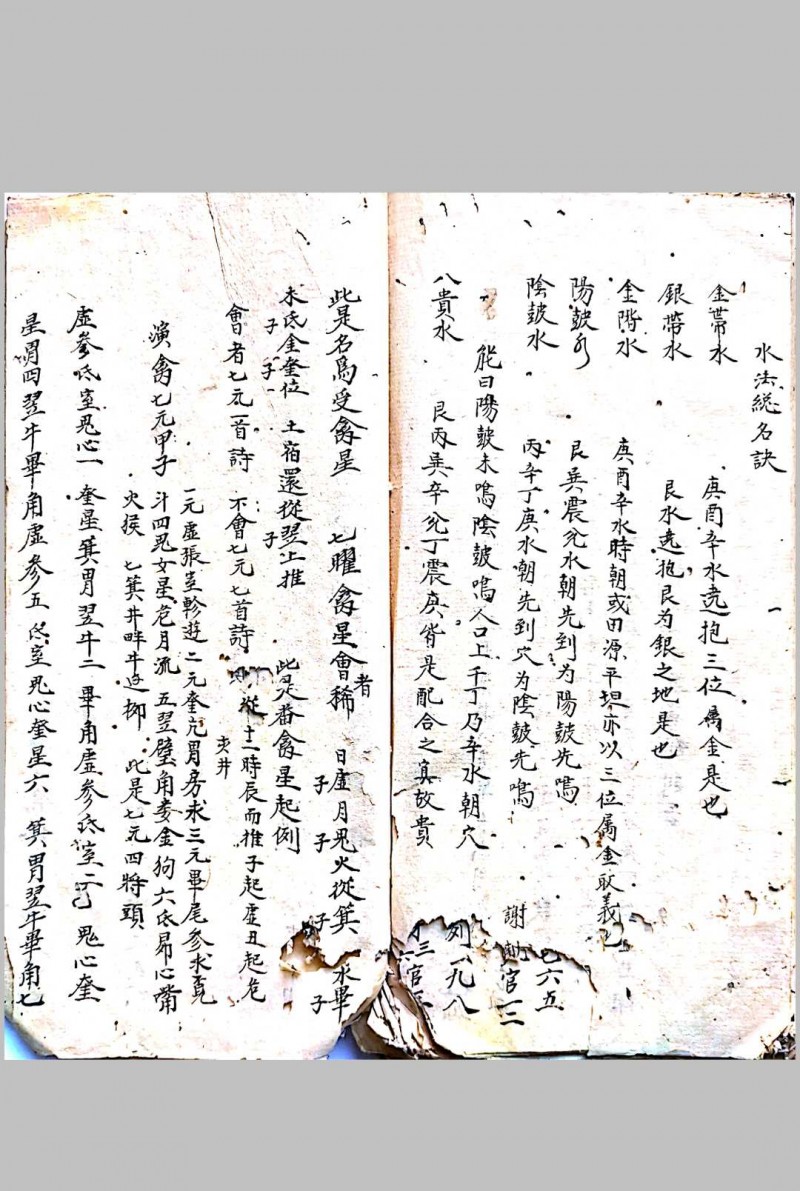 水法総名訣
金帶水　庚酉辛水遶抱三位属金是也
銀帶水　艮水遶抱艮为銀之地是也
金階水　庚酉辛水時朝或田源平坦亦以三位属金取義也
陽皷水　艮巽震兊水朝先到为陽皷先鳴
陰皷水　丙辛丁庚水朝先到穴为陰皷先鳴
七六五
謝 官二三
能曰陽皷未鳴陰皷鳴人口上千丁乃辛水朝穴
列一九八
八貴水　艮丙巽辛兊丁震庚皆是配合之真故貴
三官
此是名爲受禽星　七曜禽星會者稀　日虛月鬼火從箕　水畢
子　子　子　子
未氐金奎位　土宿還從翌上推　此是畨禽星起例
子　子　子
會者七元一首詩　不會七元七首詩　從十二時辰而推子起虛丑起危
演禽七元甲子　一元虛張室軫遊二元奎亢胃房求三元畢尾参求覓
斗四鬼女星危月流　五翌璧角娄金狗六氐昴心觜
火猴　七箕井畔牛迠柳　此是七元四將頭
虛参氐室鬼心一　奎星箕胃翌牛二　畢角虛参氐室三　鬼心奎
星胃四翌牛畢角虛参五　氐室鬼心奎星六　箕胃翌牛畢角七